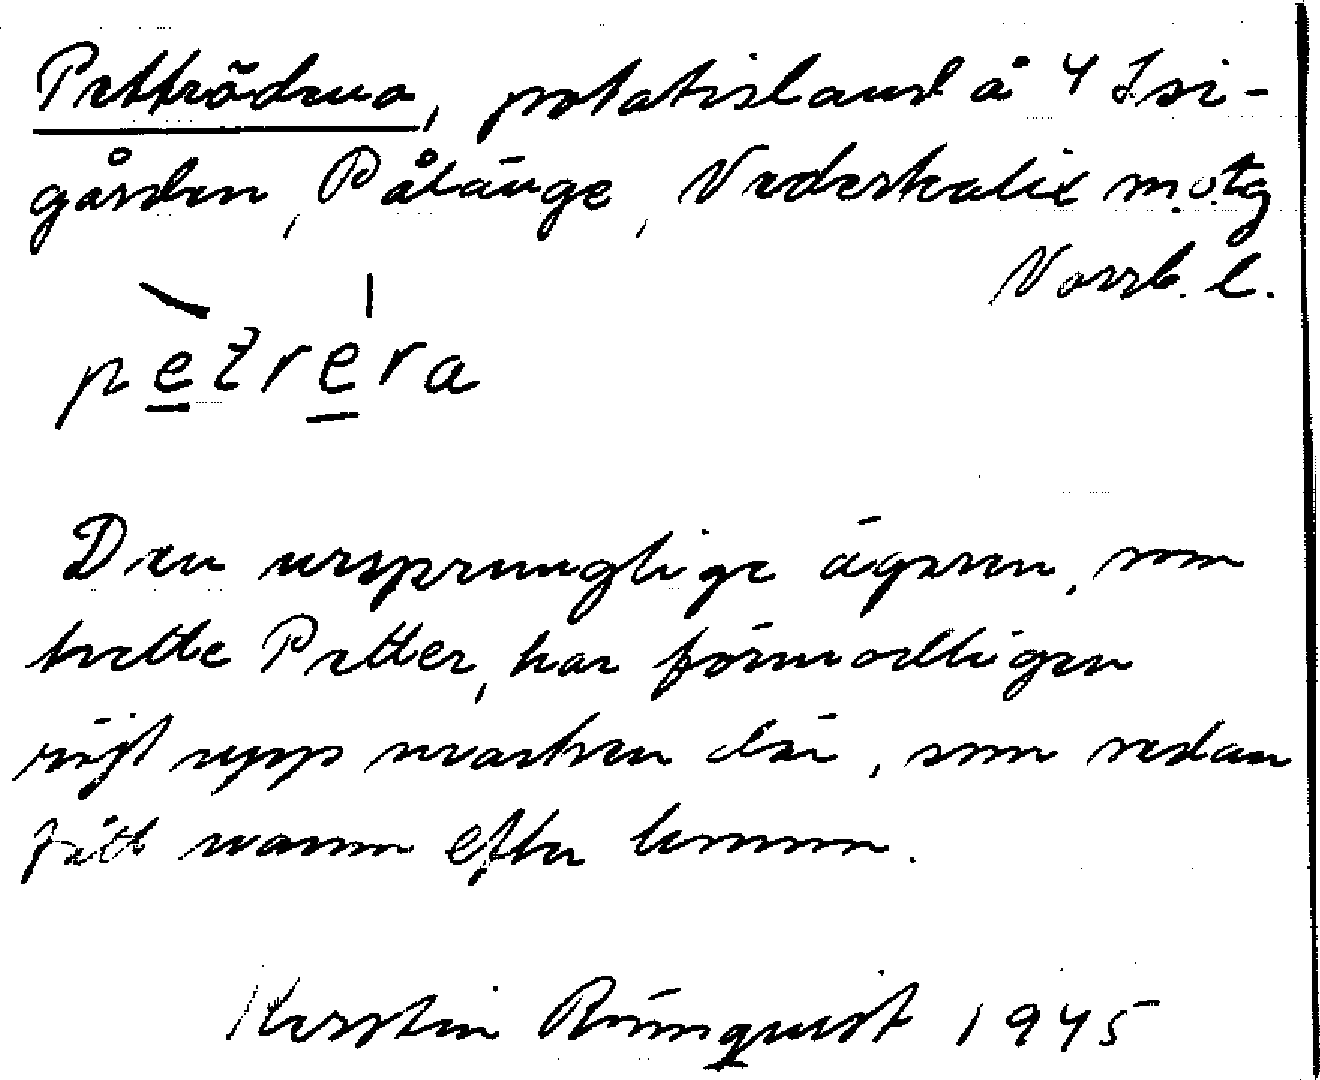 potatisland å 4 Isi-
gården, Pålänge, Nederkalix m.o.tg
Norrb. l.
petrera
Den ursprunglige ägaren, som
hette Petter, har förmodligen
röjt upp marken där, som sedan
fått namn efter honom.
Kerstin Rönnquist 1945